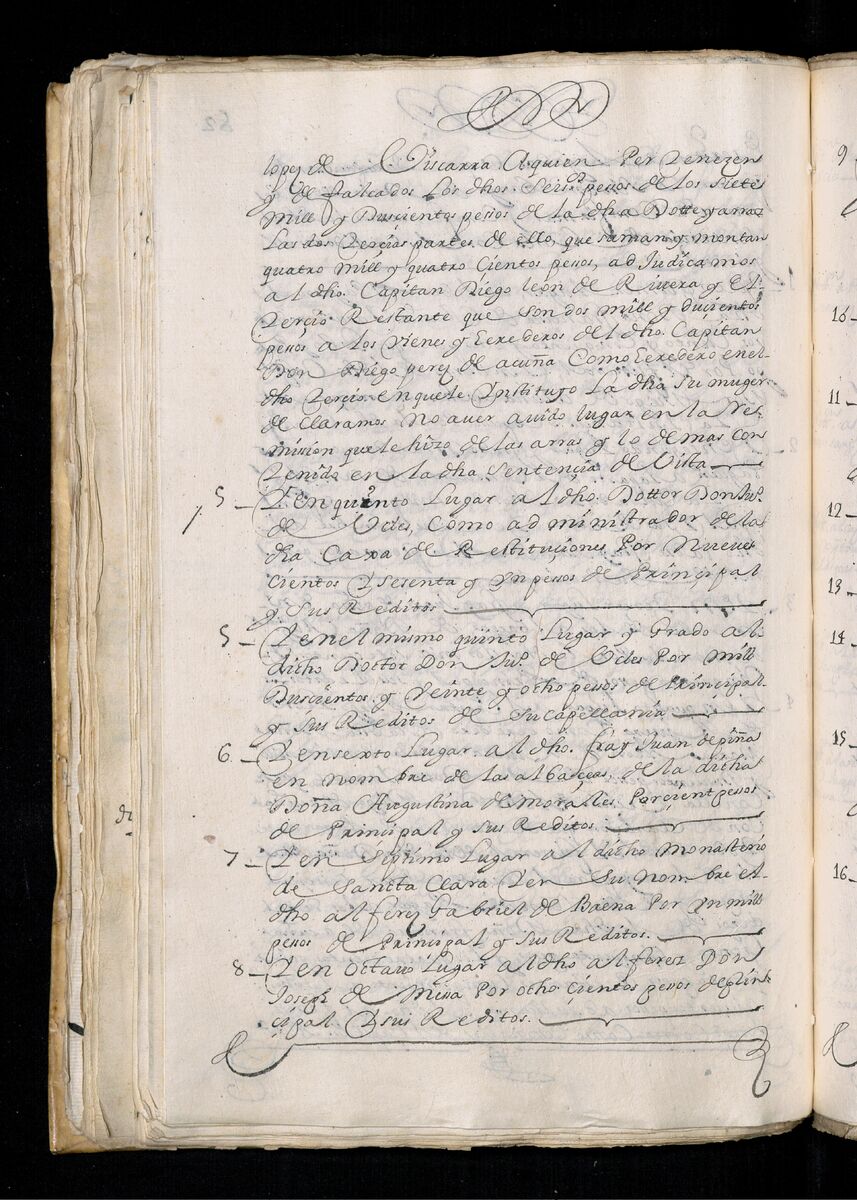 lopez de Viscarra Aquien Pertenezen
y de falcados Los dhos. Seis.os pessos de los siete
mill y Duscientos pesos de la dha Dotte y arras
Las dos Tercias partes de ello, que suman y montan
quatro mill y quatro Cientos pessos, adJudicamos
al dho. Capitan Diego leon de Rivera y El
Tercio Restante que son dos mill y ducientos
pessos a los Vienes y Eerederos del dho. Capitan
Don Diego perez de acuña Como Eeredero en el
dho Tercio. en que le Instituyo La dha su muger
de claramos No auer auido lugar en la Re
mision que le hizo de las arras y lo demas con
Tenido en la dha Sentençia de Vista
5 Y en quinto Lugar al dho. Dottor Don Ju.º
de Vcles, Como administrador de la
dha Caxa de Restituçiones Por Nueve
cientos Y sesenta y Un pessos de Prinçipal
y Sus Reditos
5 Y en el mismo quinto Lugar y Grado al
dicho Dottor Don Ju.º de Vcles Por mill
Duscientos y Veinte y ocho pessos de Prinçipal
y Sus Reditos de Su capellania
6 Y en sexto Lugar al dho. fray Juan de piña
en nombre de las albaçeas, de la dicha
Doña Augustina de morales Por çient pessos
de Prinçipal y Sus Reditos
7 Y en Septimo Lugar al dicho monasterio
de Sancta Clara Y en Su nombre el
dho alferez Gabriel de Baena Por Un mill
pessos de Prinçipal y Sus Reditos.
8 Y en Octauo Lugar al dho alferez Don
Joseph de Missa Por ocho çientos pesos de prin
çipal Y sus Reditos.
9
10
11
12
13
14
15
16